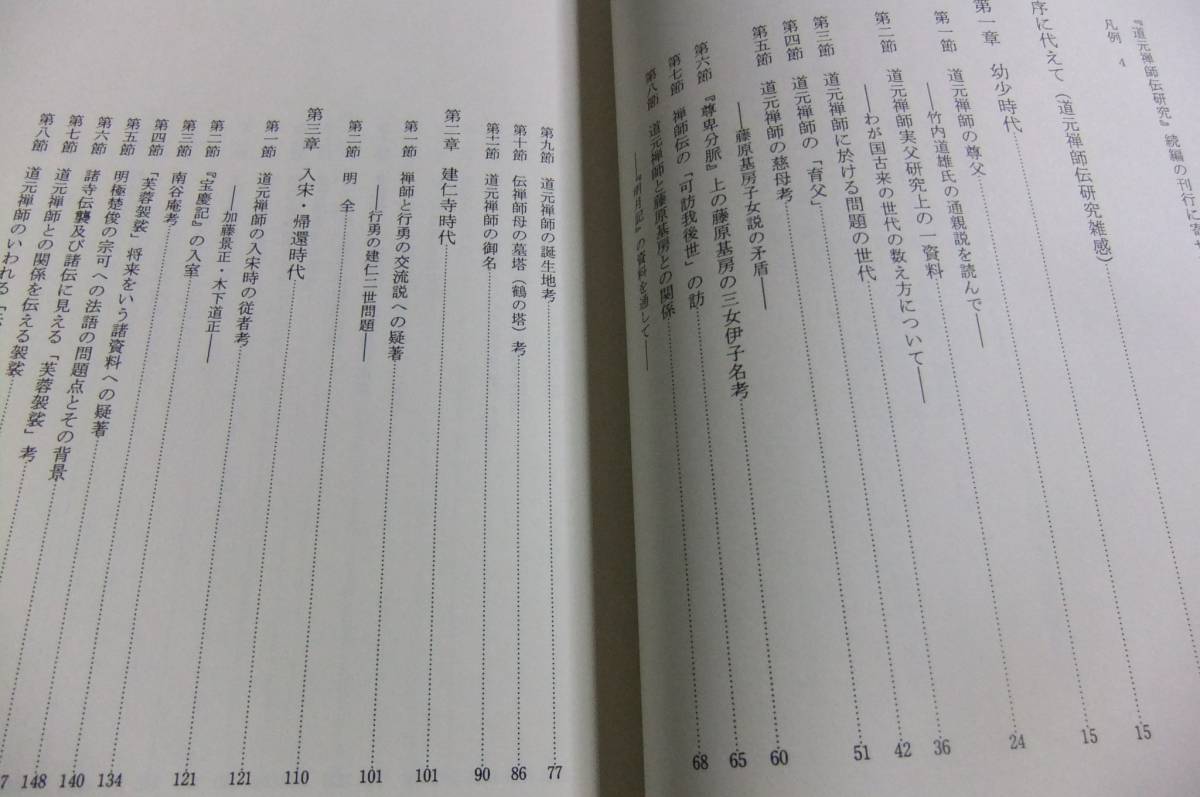 『道元禅師伝研究』続編の刊行に
凡例 4
序に代えて（道元禅師伝研究雑感）……15
第一章 幼少時代……15
第一節 道元禅師の尊父
――竹内道雄氏の通親説を読んで――……24
第二節 道元禅師実父研究上の一資料
――わが国古来の世代の数え方について――……36
第三節 道元禅師に於ける問題の世代……42
第四節 道元禅師の「育父」……51
第五節 道元禅師の慈母考
――藤原基房子女説の矛盾――……60
第六節 『尊卑分脈』上の藤原基房の三女伊子名考……65
第七節 禅師伝の「可訪我後世」の訪……68
第八節 道元禅師と藤原基房との関係
――『明月記』の資料を通して――……
第九節 道元禅師の誕生地考……77
第十節 伝禅師母の墓塔（鶴の塔）考……86
第十一節 道元禅師の御名……90
第二章 建仁寺時代……101
第一節 禅師と行勇の交流説への疑著
――行勇の建仁二世問題――……101
第二節 明 全……110
第三章 入宋・帰還時代……121
第一節 道元禅師の入宋時の従者考
――加藤景正・木下道正――……121
第二節 『宝慶記』の入室……134
第三節 南谷庵考……140
第四節 「芙蓉袈裟」将来をいう諸資料への疑著……148
第五節 明極楚俊の宗可への法語の問題点とその背景……7
第六節 諸寺伝襲及び諸伝に見える「芙蓉袈裟」考
第七節 道元禅師との関係を伝える袈裟
第八節 道元禅師のいわれる「